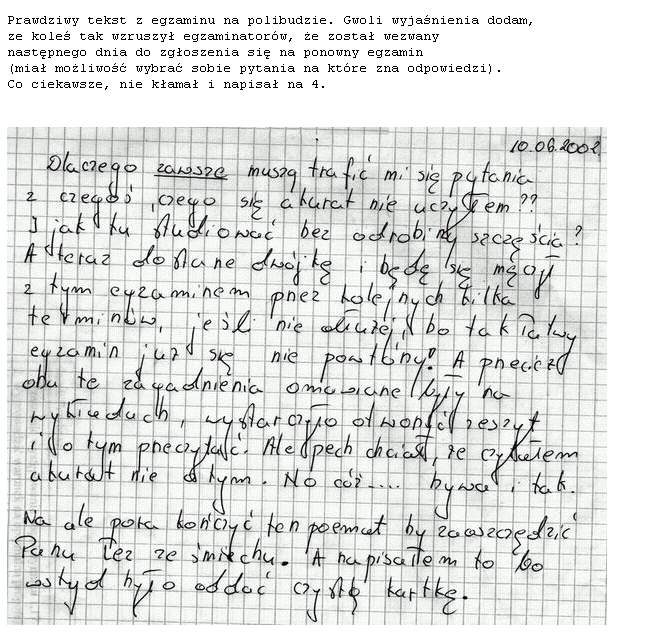 Prawdziwy tekst z egzaminu na polibudzie. Gwoli wyjaśnienia dodam,
ze koleś tak wzruszył egzaminatorów, że został wezwany
następnego dnia do zgłoszenia się na ponowny egzamin
(miał możliwość wybrać sobie pytania na które zna odpowiedzi).
Co ciekawsze, nie kłamał i napisał na 4.
10.06.2002
Dlaczego zawsze muszą trafić mi się pytania
z czegoś, czego się akurat nie uczyłem??
I jak tu studiować bez odrobiny szczęścia?
A teraz dostane dwójkę i będę się męczył
z tym egzaminem przez kolejnych kilka
terminów, jeśli nie dłużej, bo tak łatwy
egzamin już się nie powtórzy! A przecież
oba te zagadnienia omawiane były na
wykładach, wystarczyło otworzyć zeszyt
i o tym przeczytać. Ale pech chciał, że czytałem
akurat nie o tym. No cóż.... bywa i tak.
Na ale pora kończyć ten poemat by zaoszczędzić
Panu łez ze śmiechu. A napisałem to bo
wstyd było oddać czystą kartkę.